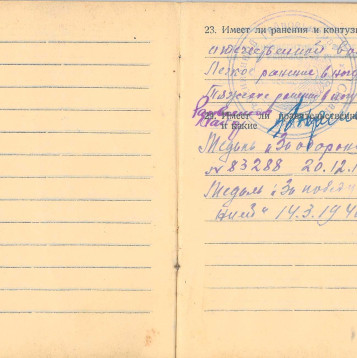 23. Имеет ли ранения и контуз
отечественной во
Легкое ранение в ног
Тяжелое ранение в ног
Имеет ли правительственн
и какие
Медаль „За оборон
№ 83288 20.12.1
Медаль „За победу
нией" 14.3.194